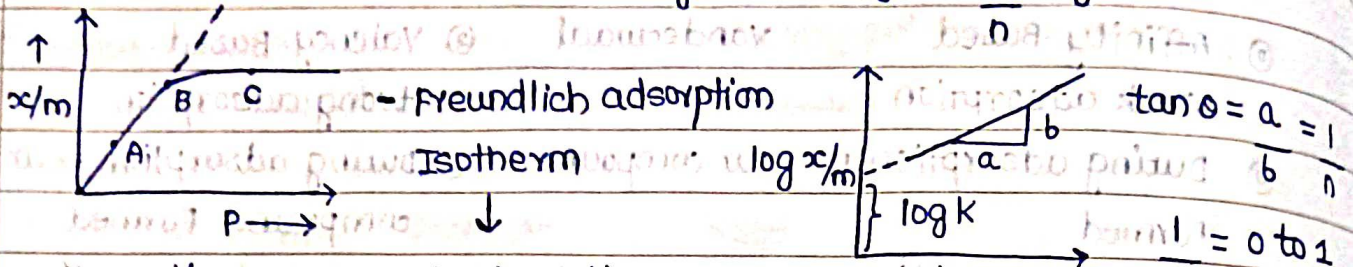 n
↑
x/m
B C
A
P →
- Freundlich adsorption
Isotherm
↓
log x/m
a
b
} log K
tan θ = a/b = 1/n
1 = 0 to 1